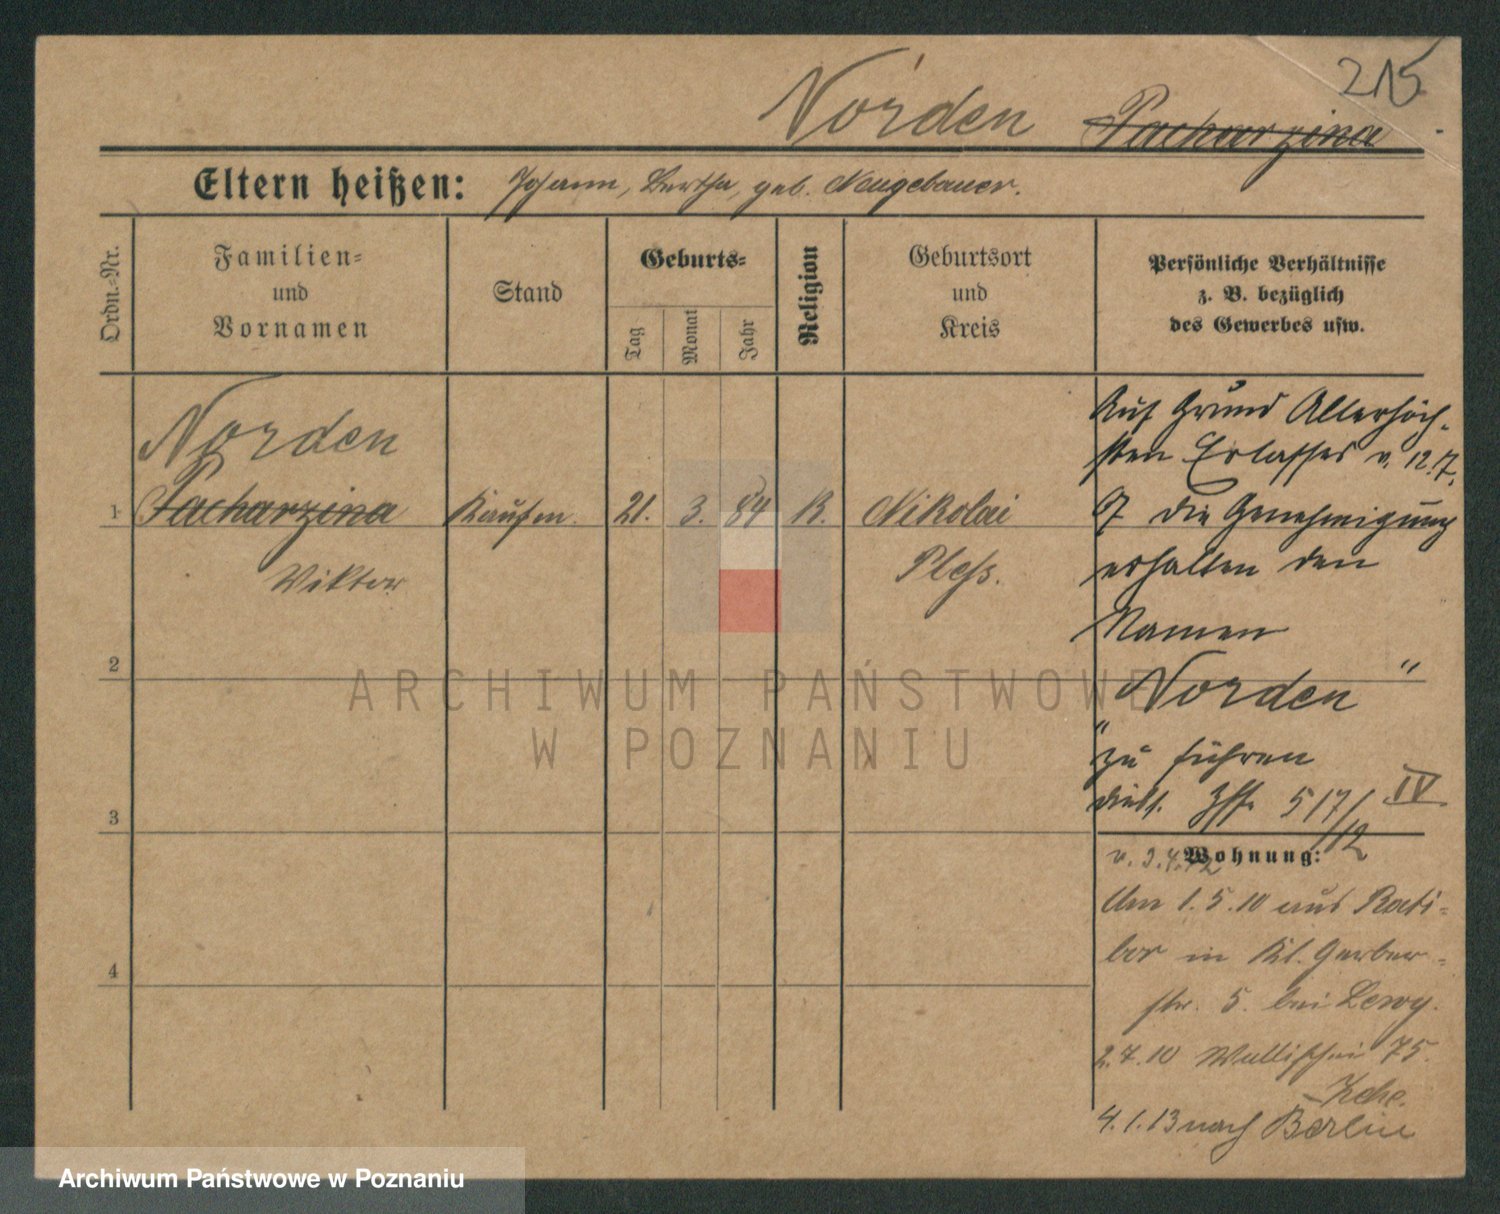 215
Norden Pacharzina
Eltern heißen: Johann, Bertha, geb. Neugebauer.
Ordn.-Nr.
Familien-
und
Vornamen
Stand
Geburts-
Tag
Monat
Jahr
Religion
Geburtsort
und
Kreis
Persönliche Verhältnisse
z. B. bezüglich
des Gewerbes usw.
Norden
1 Pacharzina Kaufm. 21. 3. 84 K. Nikolai
Viktor Pless.
2
3
4
Auf Grund Allerhöch-
sten Erlasses v. 12.7.
07 die Genehmigung
erhalten den
Namen
"Norden"
zu führen
517/12 IV
Wohnung:
Um 1.5.10 aus Rati-
bor in Kl. Gerber-
str. 5. bei Lewy.
2.7.10 Wallischei 75.
4.1.13 nach Berlin
ARCHIWUM PAŃSTWOWE
W POZNANIU
Archiwum Państwowe w Poznaniu